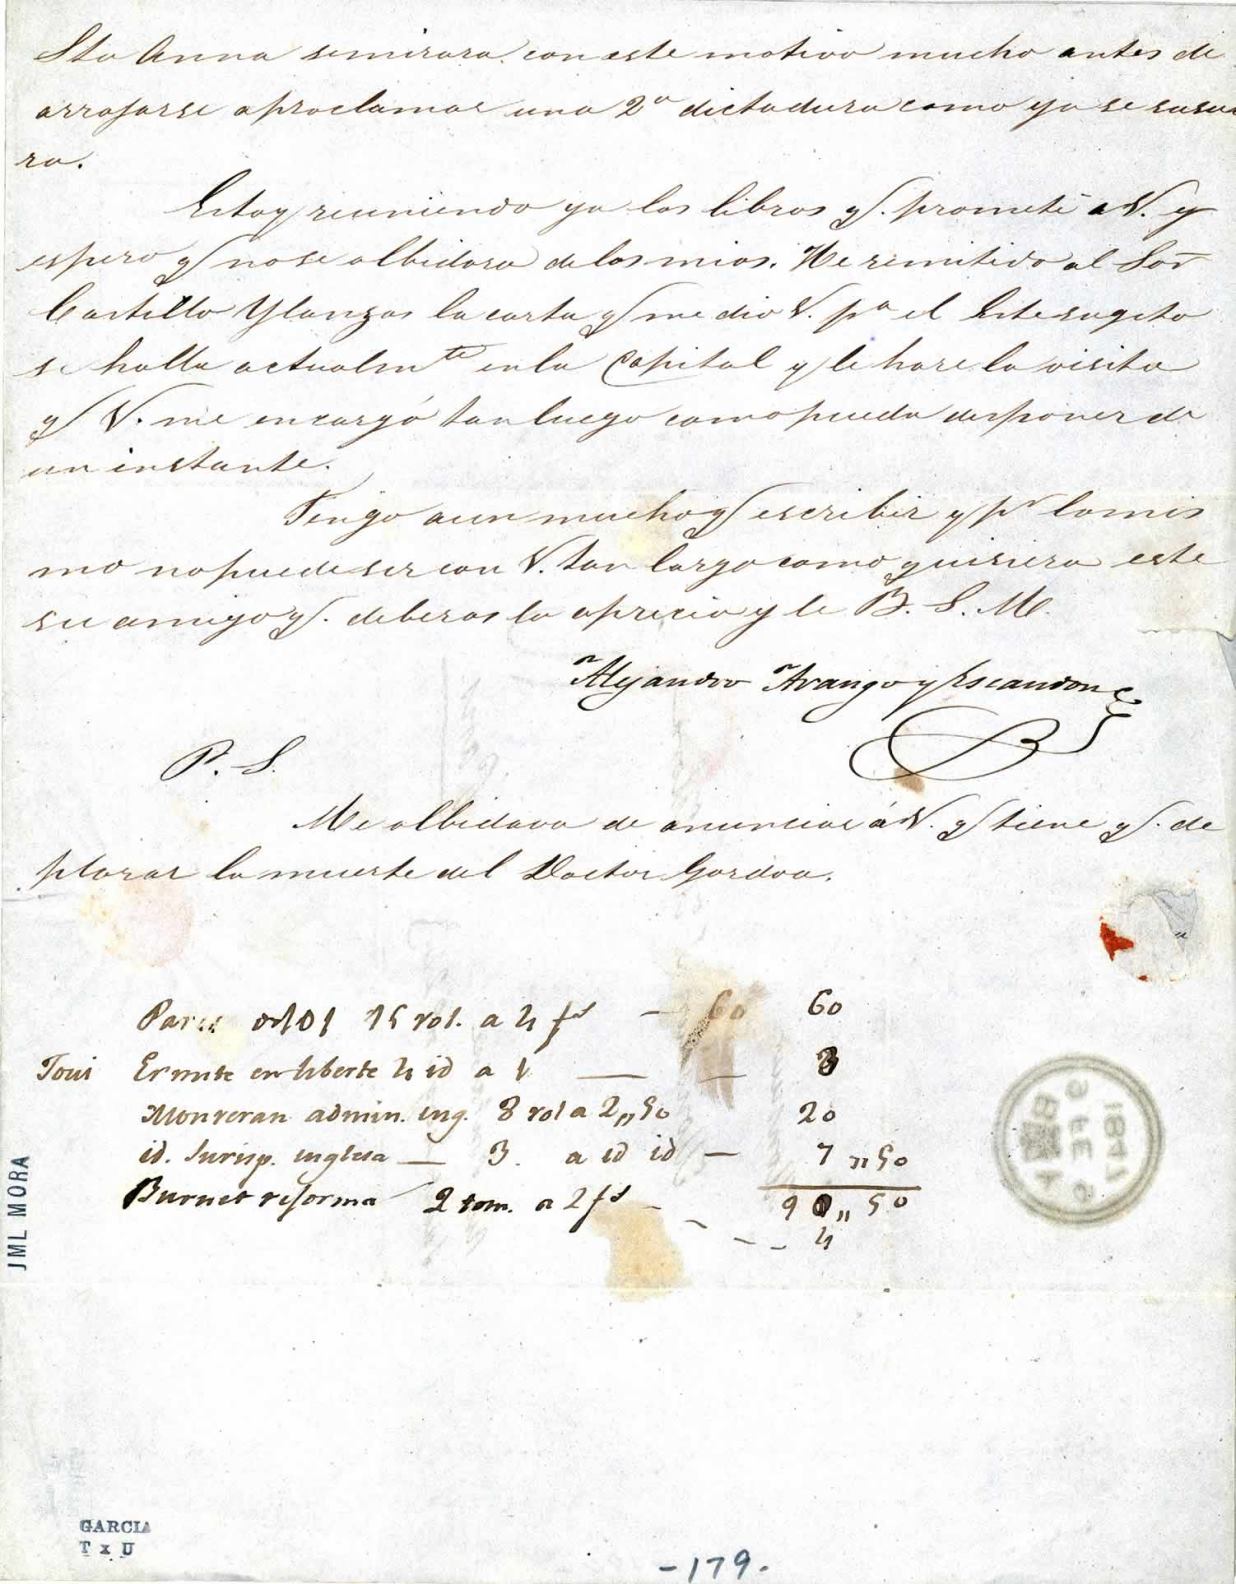 Sta Anna se mirara con este motivo mucho antes de
arrojarse a proclamar una 2a dictadura como ya se susur
ra.
Estoy reuniendo ya los libros q. prometi a V. y
espero q no se olbidara de los mios. He remitido al Sor
Castillo Ylanzas la carta q me dio V. pa el Este sugeto
se halla actualmte en la Capital y le hare la visita
q V. me encargó tan luego como pueda disponer de
un instante.
Tengo aun mucho q escribir y pr lo mis
mo no puede ser con V. tan largo como quisiera este
su amigo q. deberas lo aprecia y le B. S. M.
Alejandro Arango y Escandon
P. S.
Me olbidava de anunciar á V. q tiene q. de
plorar la muerte del Doctor Gordoa.
Paris 15 vol. a 4 fs — 60 60
Toui Ermite en liberte 4 id a — —
Monveran admin. ing. 8 vol a 2,,50 20
id. Jurisp. inglesa — 3. a id id — 7 ,,50
Burnet reforma 2 tom. a 2 fs - 90,,50
- - - 4
1847
JML MORA
GARCIA
T x U
-179.